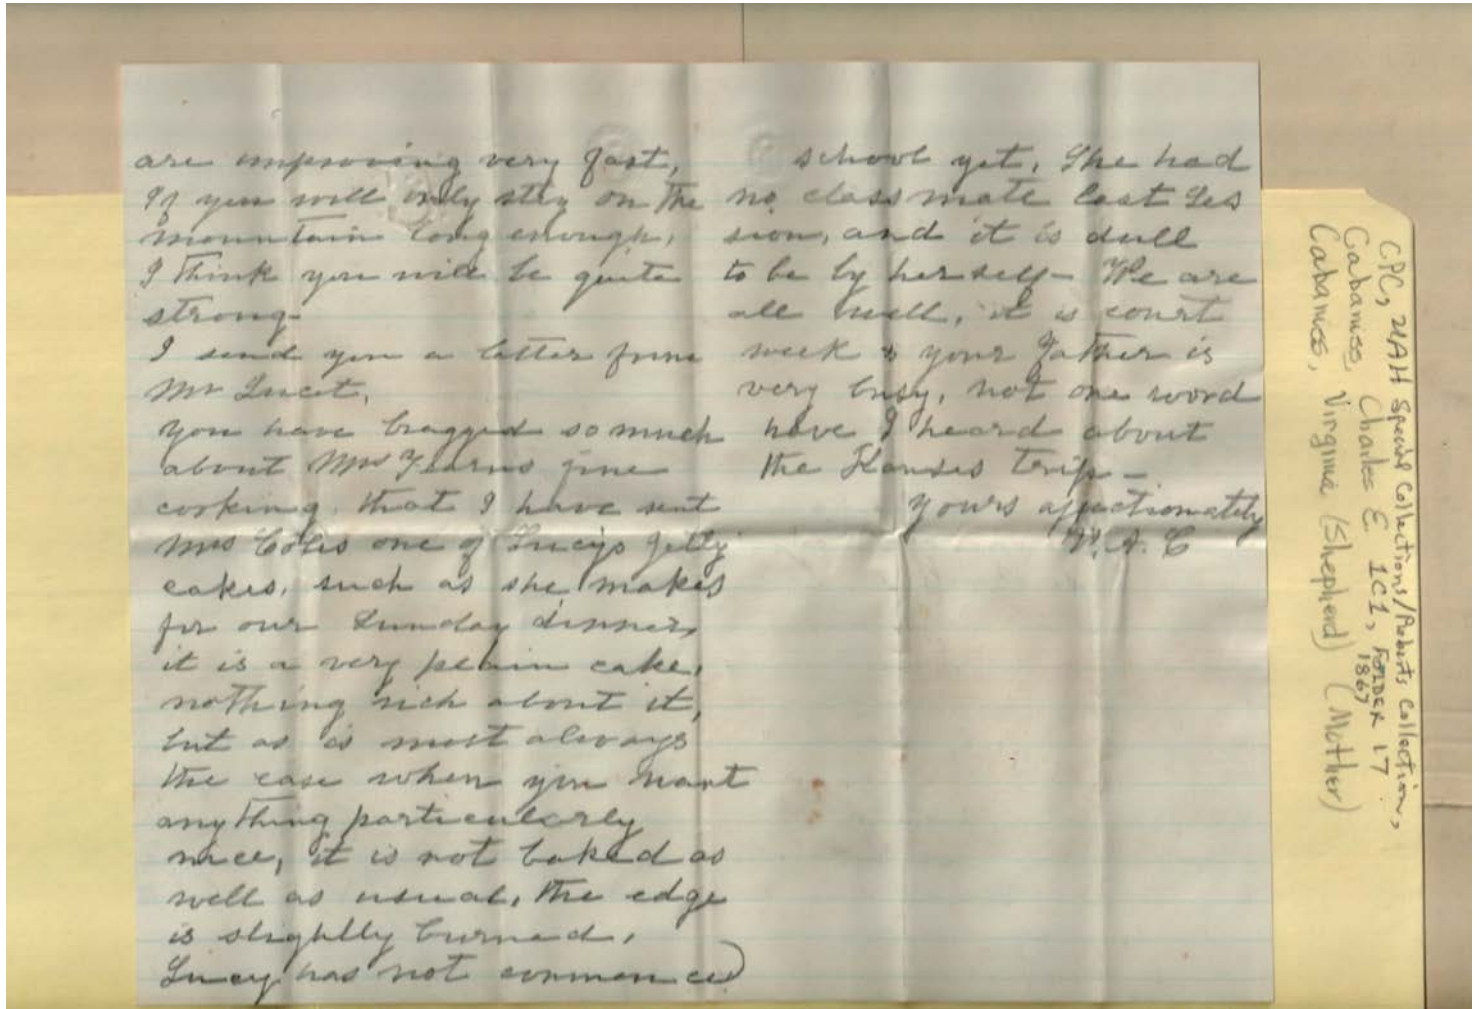 are improving very fast,
If you will only stay on the
mountain long enough,
I think you will be quite
strong-
I send you a letter from
Mr
You have bragged so much
about Mrs fine
cooking, that I have sent
Mrs Coles one of Lucys Jelly
cakes, such as she makes
for our Sunday dinner,
it is a very plain cake,
nothing rich about it,
but as is most always
the case when you want
anything particularly
nice, it is not baked as
well as usual, the edge
is slightly burned,
Lucy has not commenced
school yet, She had
no classmate last ses
sion, and it is dull
to be by herself- We are
all well, it is court
week & your Father is
very busy, not one word
have I heard about
the Kansas trip-
Yours affectionately
V. A. C
CPC, UAH Special Collections/Roberts Collection,
Cabaniss, Charles E 1C1, FOLDER 17
1867
Cabaniss, Virginia (Shepherd) (Mother)